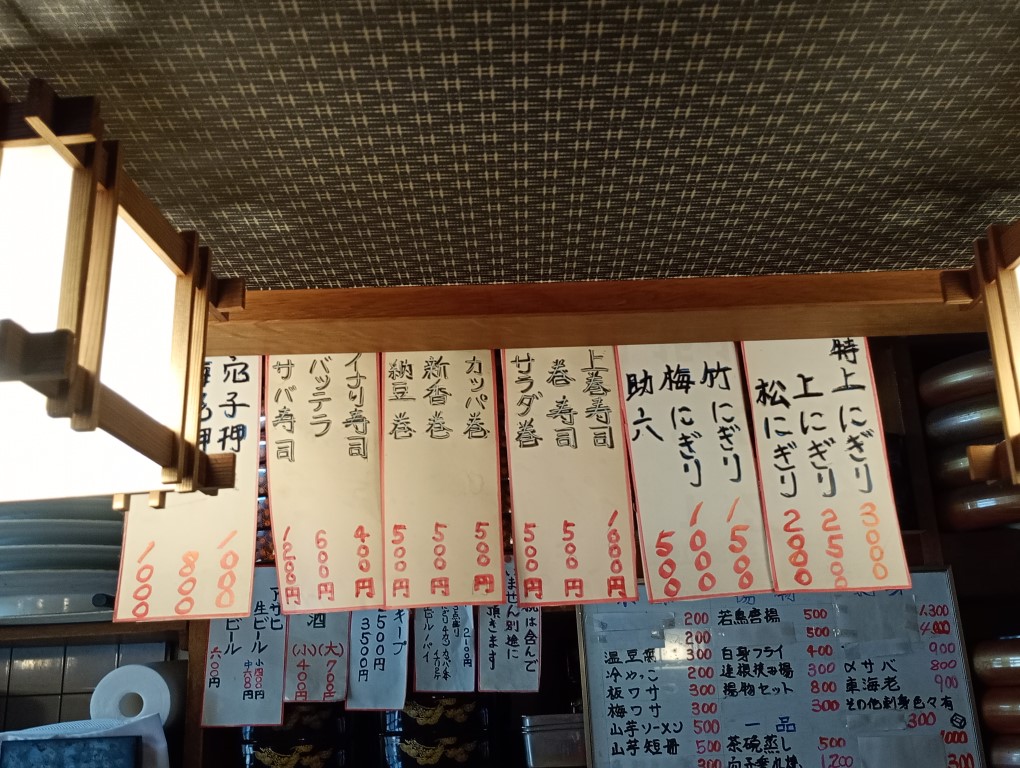 特上にぎり 3000
上にぎり 2500
松にぎり 2000
竹にぎり 1500
梅にぎり 1000
助六 500
上巻寿司 1000円
巻寿司 500円
サラダ巻 500円
カッパ巻 500円
新香巻 500円
納豆巻 500円
イナリ寿司 400円
バッテラ 600円
サバ寿司 1200円
穴子押 1000
800
1000
税は含んで
いません別途に
頂きます
2100円
キープ
3500円
酒
(大) 700円
(小) 400円
アサヒ
生ビール
小 400円
中 600円
ビール
六〇〇円
200
200
温豆腐 300
冷やっこ 200
板ワサ 300
梅ワサ 300
山芋ソーメン 500
山芋短冊 500
300
若鳥唐揚 500
500
白身フライ 400
連根挟み揚 300
揚物セット 800
300
一品
茶碗蒸し 500
1,200
1,300
4,000
900
〆サバ 800
車海老 900
その他刺身色々有
300
1000
300